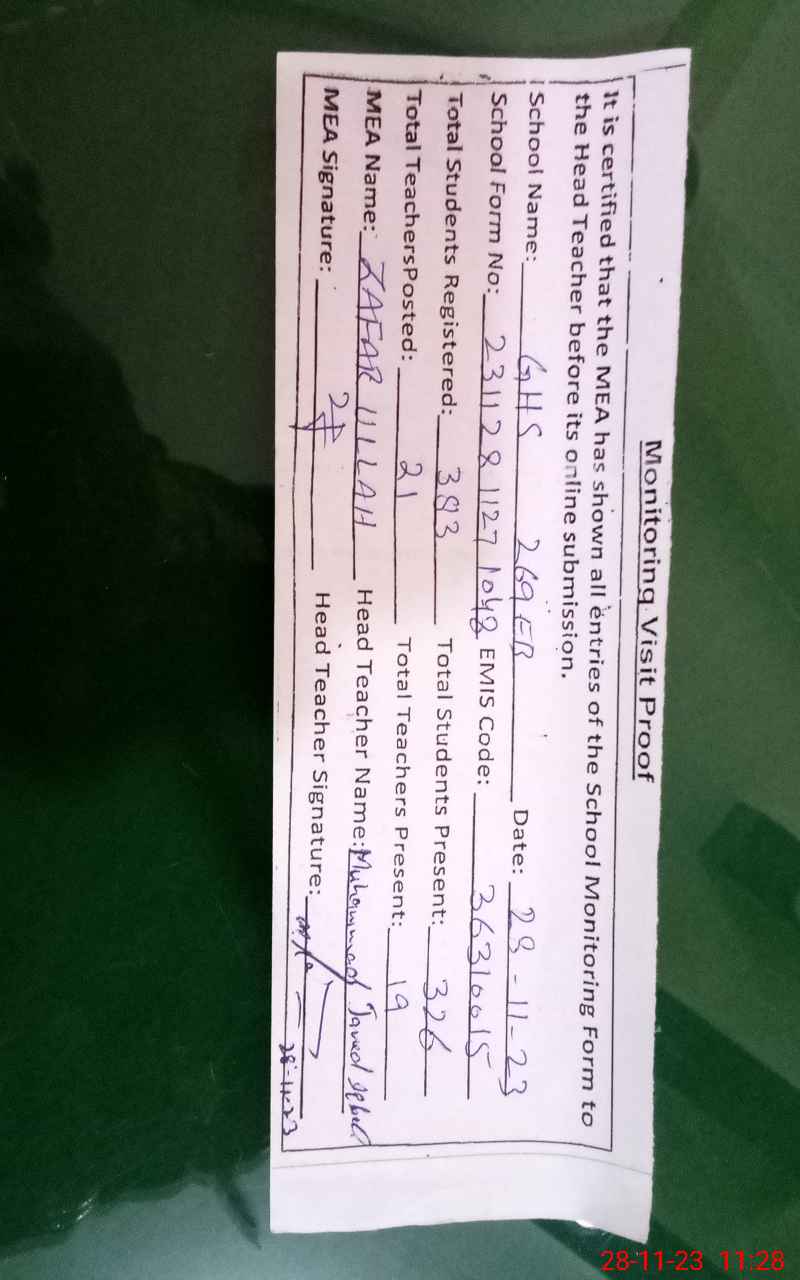 Monitoring Visit Proof
It is certified that the MEA has shown all entries of the School Monitoring Form to
the Head Teacher before its online submission.
School Name: GHS 269 EB Date: 28-11-23
School Form No: 231128 1127 1048 EMIS Code: 36310015
Total Students Registered: 383 Total Students Present: 326
Total TeachersPosted: 21 Total Teachers Present: 19
MEA Name: ZAFAR ULLAH Head Teacher Name: Muhammad Javed Iqbal
MEA Signature: Head Teacher Signature:
28-11-23
28-11-23 11:28